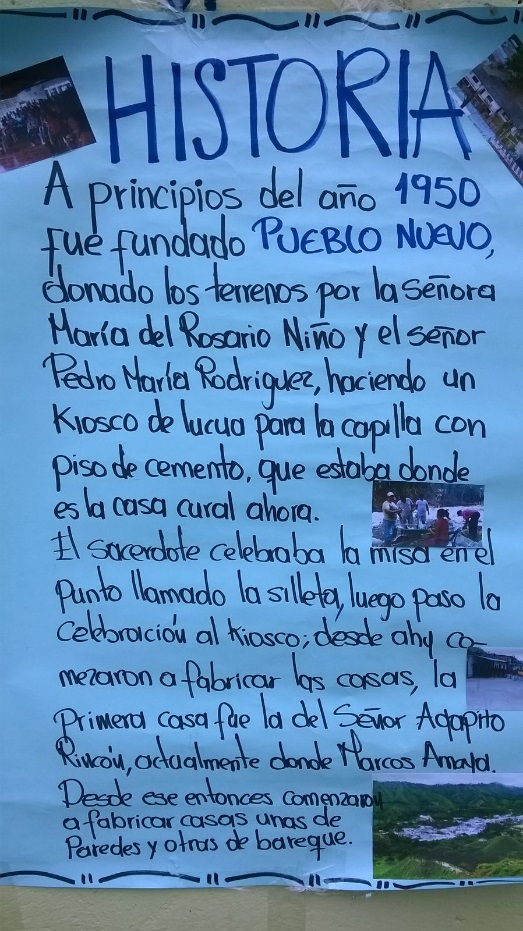 HISTORIA
A principios del año 1950
fue fundado PUEBLO NUEVO,
donado los terrenos por la señora
María del Rosario Niño y el señor
Pedro María Rodriguez, haciendo un
Kiosco de lucua para la capilla con
piso de cemento, que estaba donde
es la casa cural ahora.
El sacerdote celebraba la misa en el
Punto llamado la silleta, luego paso la
celebración al kiosco; desde ahy co-
mezaron a fabricar las casas, la
Primera casa fue la del Señor Agapito
Rincón, actualmente donde Marcos Amaya.
Desde ese entonces comenzaron
a fabricar casas unas de
Paredes y otras de bareque.